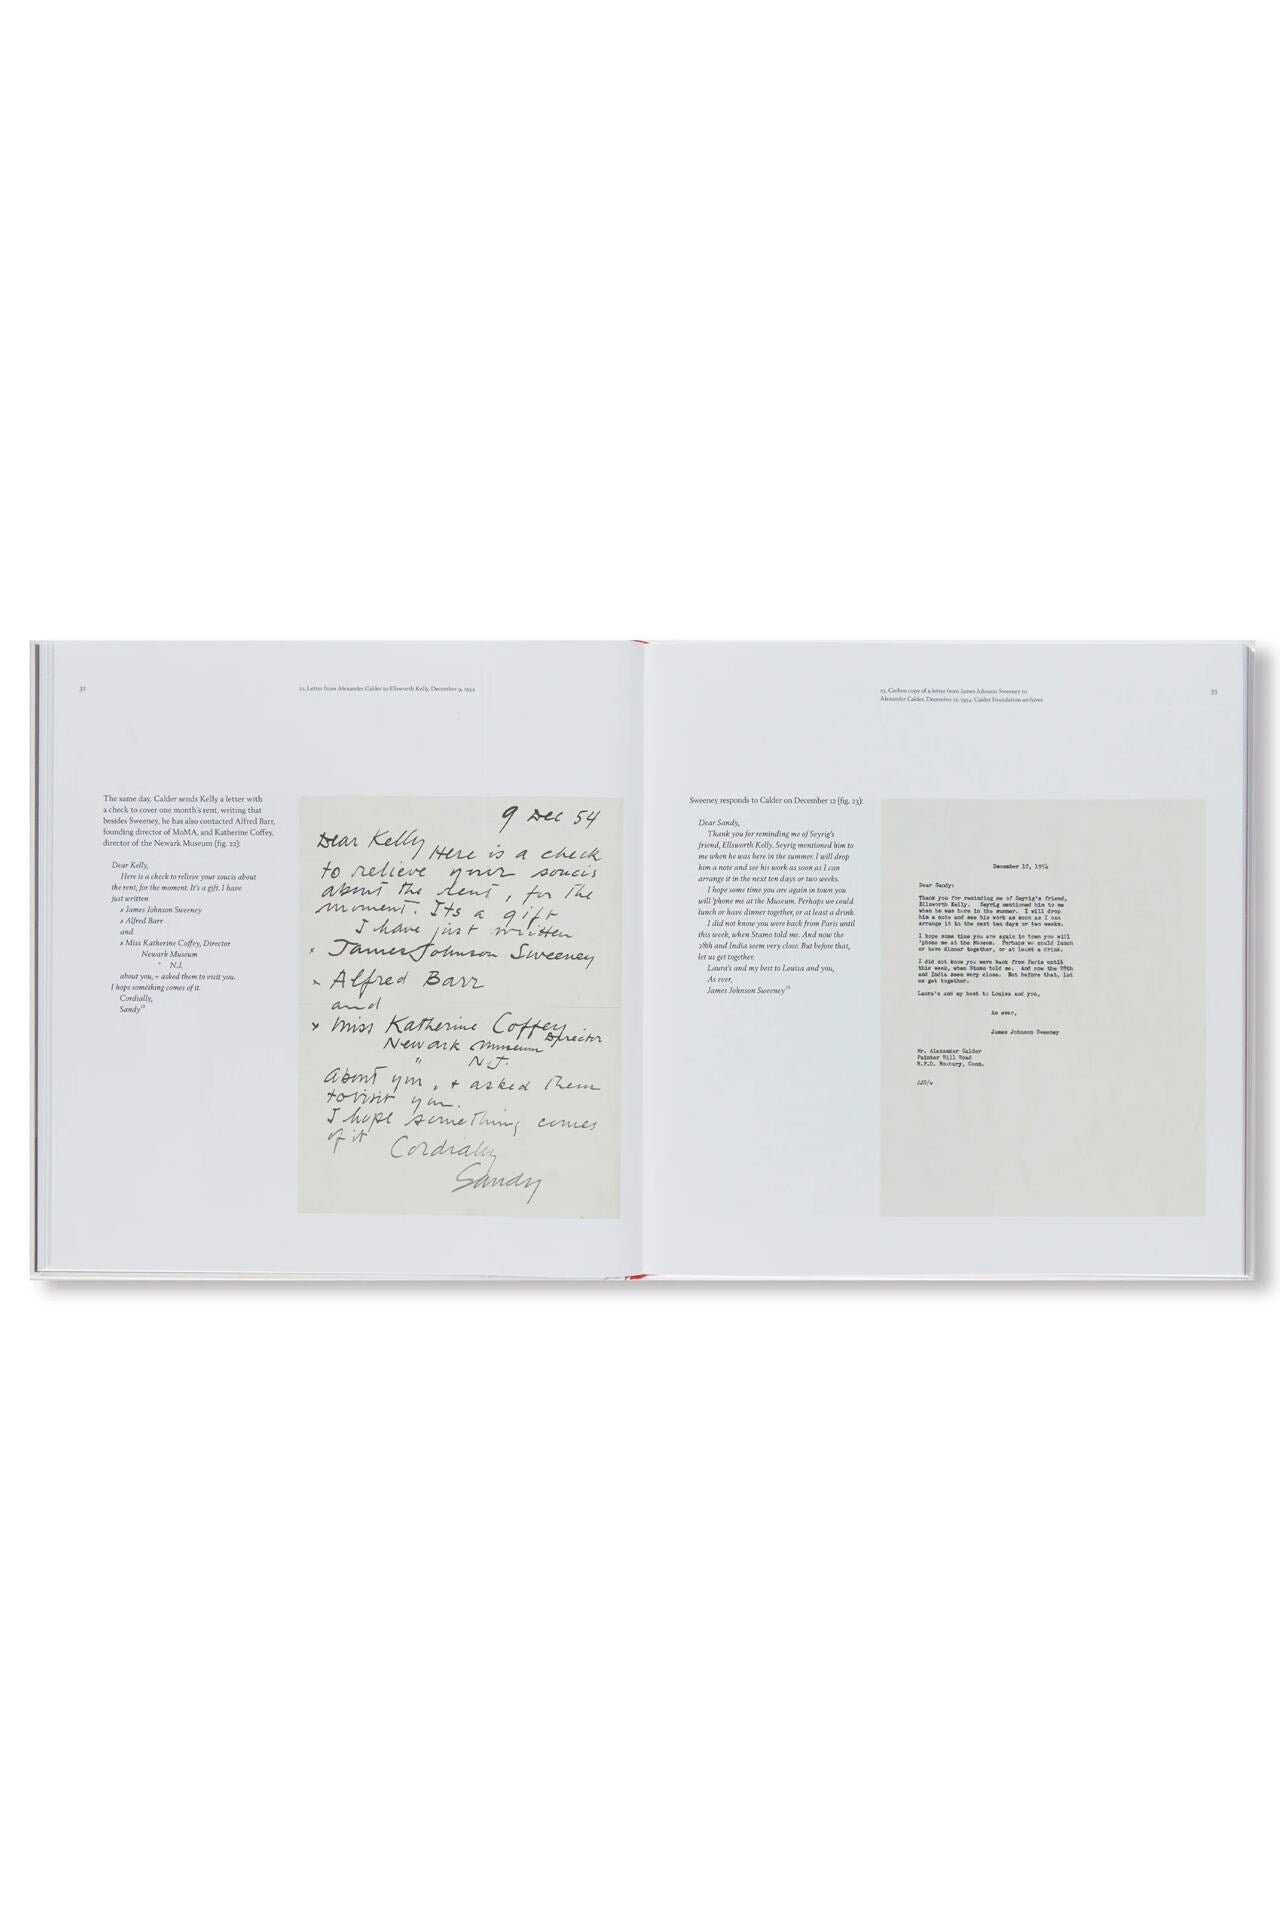 32
22. Letter from Alexander Calder to Ellsworth Kelly, December 9, 1954
The same day, Calder sends Kelly a letter with
a check to cover one month's rent, writing that
besides Sweeney, he has also contacted Alfred Barr,
founding director of MoMA, and Katherine Coffey,
director of the Newark Museum (fig. 22):
Dear Kelly,
Here is a check to relieve your soucis about
the rent, for the moment. It's a gift. I have
just written
x James Johnson Sweeney
x Alfred Barr
and
x Miss Katherine Coffey, Director
Newark Museum
" N.J.
about you, + asked them to visit you.
I hope something comes of it.
Cordially,
Sandy
9 Dec 54
Dear Kelly
Here is a check
to relieve your soucis
about the rent, for the
moment. Its a gift
I have just written
x James Johnson Sweeney
x Alfred Barr
and
x Miss Katherine Coffey
Director
Newark Museum
" N.J.
About you, + asked them
to visit you.
I hope something comes
of it
Cordially
Sandy
23. Carbon copy of a letter from James Johnson Sweeney to
Alexander Calder, December 12, 1954. Calder Foundation archives
33
Sweeney responds to Calder on December 12 (fig. 23):
Dear Sandy,
Thank you for reminding me of Seyrig's
friend, Ellsworth Kelly. Seyrig mentioned him to
me when he was here in the summer. I will drop
him a note and see his work as soon as I can
arrange it in the next ten days or two weeks.
I hope some time you are again in town you
will 'phone me at the Museum. Perhaps we could
lunch or have dinner together, or at least a drink.
I did not know you were back from Paris until
this week, when Stamo told me. And now the
28th and India seem very close. But before that,
let us get together.
Laura's and my best to Louisa and you,
As ever,
James Johnson Sweeney
December 12, 1954
Dear Sandy:
Thank you for reminding me of Seyrig's friend,
Ellsworth Kelly. Seyrig mentioned him to me
when he was here in the summer. I will drop
him a note and see his work as soon as I can
arrange it in the next ten days or two weeks.
I hope some time you are again in town you will
'phone me at the Museum. Perhaps we could lunch
or have dinner together, or at least a drink.
I did not know you were back from Paris until
this week, when Stamo told me. And now the 28th
and India seem very close. But before that, let
us get together.
Laura's and my best to Louisa and you,
As ever,
James Johnson Sweeney
Mr. Alexander Calder
Painter Hill Road
R.F.D. Roxbury, Conn.